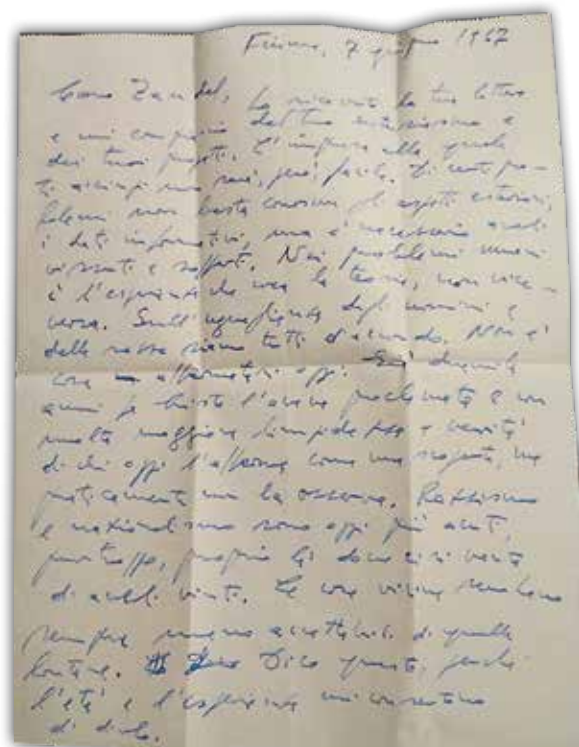 Fiume, 7 giugno 1967
Caro Zandel, ho ricevuto la tua lettera
e mi compiaccio del tuo entusiasmo e
dei tuoi progetti. L'impresa alla quale
ti accingi non sarà, però, facile. Di certi pro-
blemi non basta conoscere gli aspetti esteriori,
i dati informativi, ma è necessario averli
vissuti e sofferti. Nei problemi umani
è l'esperienza che crea la teoria, non vice-
versa. Sull'uguaglianza degli uomini e
delle razze siamo tutti d'accordo. Non è
cosa oggi. Già duemila
anni fa Cristo l'aveva proclamata e con
molta maggiore limpidezza e verità
di chi oggi l'afferma come una scoperta, ma
praticamente non la osserva. Razzismo
e nazionalismo sono oggi più acuti,
purtroppo, proprio là dove ci si vanta
di averli vinti. Le cose vicine sembrano
sempre meno accettabili di quelle
lontane. Dico questo, perché
l'età e l'esperienza mi consentono
di dirlo.